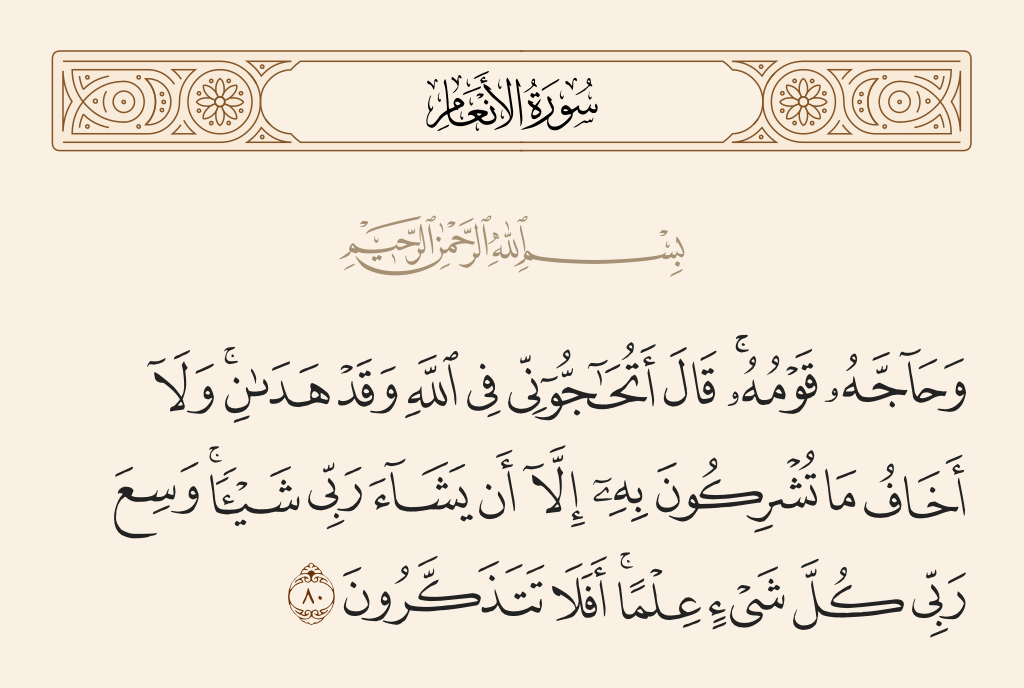 سُورَةُ الأَنْعَامِ
بِسْمِ ٱللَّهِ ٱلرَّحْمَٰنِ ٱلرَّحِيمِ
وَحَآجَّهُۥ قَوْمُهُۥ ۚ قَالَ أَتُحَـٰٓجُّوٓنِّى فِى ٱللَّهِ وَقَدْ هَدَىٰنِ ۚ وَلَآ
أَخَافُ مَا تُشْرِكُونَ بِهِۦٓ إِلَّآ أَن يَشَآءَ رَبِّى شَيْـًٔا ۗ وَسِعَ
رَبِّى كُلَّ شَىْءٍ عِلْمًا ۗ أَفَلَا تَتَذَكَّرُونَ ٨٠